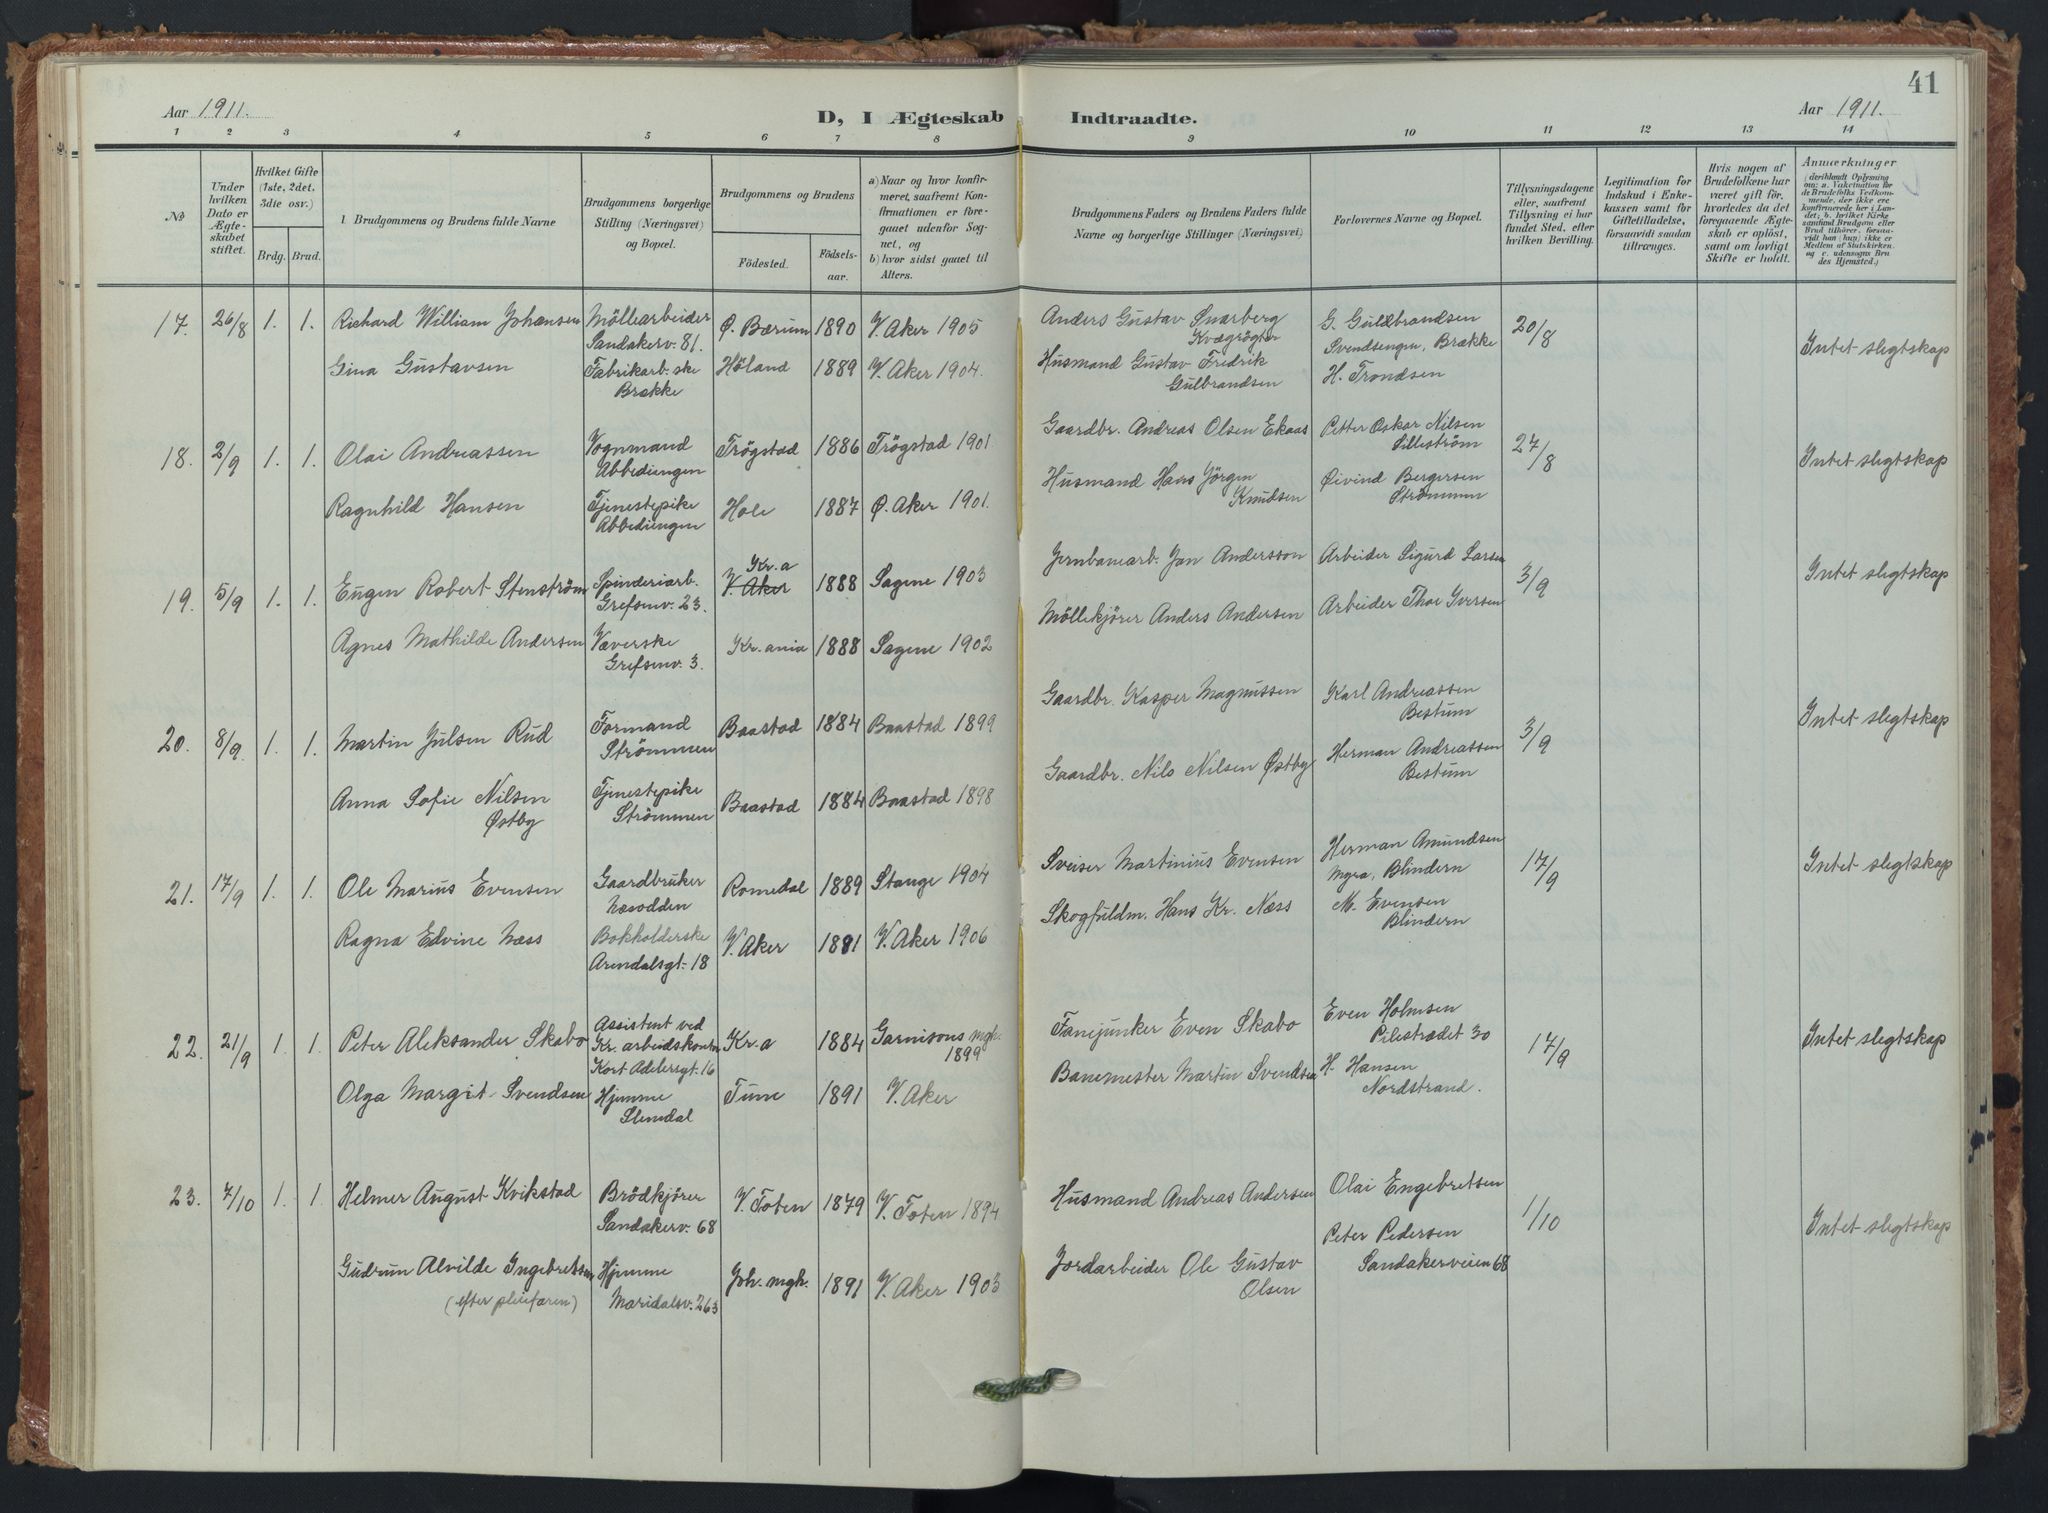 41
Aar 1911.
D, I Ægteskab Indtraadte.
Aar 1911.
1 2 3 4 5 6 7 8 9 10 11 12 13 14
No
Under hvilken Dato er Ægteskabet stiftet.
Hvilket Gifte (1ste, 2det, 3die osv.)
Brdg. Brud.
1 Brudgommens og Brudens fulde Navne
Brudgommens borgerlige Stilling (Næringsvei) og Bopæl.
Brudgommens og Brudens
Födested. Födselsaar.
a) Naar og hvor konfirmeret, saafremt Konfirmationen er foregaaet udenfor Sognet, og
b) hvor sidst gaaet til Alters.
Brudgommens Faders og Brudens Faders fulde Navne og borgerlige Stillinger (Næringsvei)
Forlovernes Navne og Bopæl.
Tillysningsdagene eller, saafremt Tillysning ei har fundet Sted, efter hvilken Bevilling.
Legitimation for Indskud i Enkekassen samt for Giftetilladelse, forsaavidt saadan tiltrænges.
Hvis nogen af Brudefolkene har været gift för, hvorledes da det foregaaende Ægteskab er oplöst, samt om lovligt Skifte er holdt.
Anmærkninger (deriblandt Oplysning om: a. Vakcination för de Brudefolks Vedkommende, der ikke ere konfirmerede her i Landet; b. hvilket Kirkesamfund Brudgom eller Brud tilhörer, forsaavidt han (hun) ikke er Medlem af Statskirken, og c. udensogns Brudes Hjemsted.)
17. 26/8 1. 1. Richard William Johansen Möllearbeider Sandakerv. 81. Ø. Bærum 1890 V. Aker 1905 Anders Gustav Snarberg Kvægrögter G. Guldbrandsen Svendsengen, Brække 20/8 Intet slegtskap
Gina Gustavsen Fabrikarb.ske Brække Höland 1889 V. Aker 1904. Husmand Gustav Fredrik Gulbrandsen H. Trondsen
18. 2/9 1. 1. Olai Andreassen Vognmand Abbediengen Trögstad 1886 Trögstad 1901 Gaardbr. Andreas Olsen Ekaas Petter Oskar Nilsen Lilleström 27/8 Intet slegtskap
Ragnhild Hansen Tjenestepike Abbediengen Hole 1887 Ø. Aker 1901. Husmand Hans Jörgen Knudsen Øivind Bergersen Strömmen
19. 5/9 1. 1. Eugen Robert Stenström Spinderiarb. Grefsenv. 23. V. Aker Kr.a 1888 Sagene 1903 Jernbanearb. Jan Andersson Arbeider Sigurd Larsen 3/9 Intet slegtskap
Agnes Mathilde Andersen Væverske Grefsenv. 3. Kr.ania 1888 Sagene 1902 Möllekjörer Anders Andersen Arbeider Thor Iversen
20. 8/9. 1. 1. Martin Julsen Rud Formand Strömmen Baastad 1884 Baastad 1899 Gaardbr. Kasper Magnussen Karl Andreassen Bestum 3/9 Intet slegtskap
Anna Sofie Nilsen Østby Tjenestepike Strömmen Baastad 1884 Baastad 1898 Gaardbr. Nils Nilsen Østby Herman Andreassen Bestum
21. 17/9 1. 1. Ole Marius Evensen Gaardbruker Næsodden Romedal 1889 Stange 1904 Sveiser Martinius Evensen Herman Amundsen Myra, Blindern 17/9 Intet slegtskap
Ragna Edvine Næss Bokholderske Arendalsgt. 18 V. Aker 1881 V. Aker 1906 Skogfuldm. Hans Kr. Næss M. Evensen Blindern
22. 21/9 1. 1. Peter Aleksander Skabo Assistent ved Kr. arbeidskontor Kort Adelersgt. 16 Kr.a 1884 Garnisons mgh. 1899 Fanejunker Even Skabo Even Holmsen Pilestrædet 30 17/9 Intet slegtskap
Olga Margit Svendsen Hjemme Slemdal Tune 1891 V. Aker Banemester Martin Svendsen H. Hansen Nordstrand.
23. 7/10 1. 1. Helmer August Kvikstad Brödkjörer Sandakerv. 68 V. Toten 1879 V. Toten 1894 Husmand Andreas Andersen Olai Engebretsen 1/10 Intet slegtskap
Gudrun Alvilde Ingebretsen (efter pleiefaren) Hjemme Maridalsv. 263 Joh. mgh. 1891 V. Aker 1903 Jordarbeider Ole Gustav Olsen Peter Pedersen Sandakerveien 68